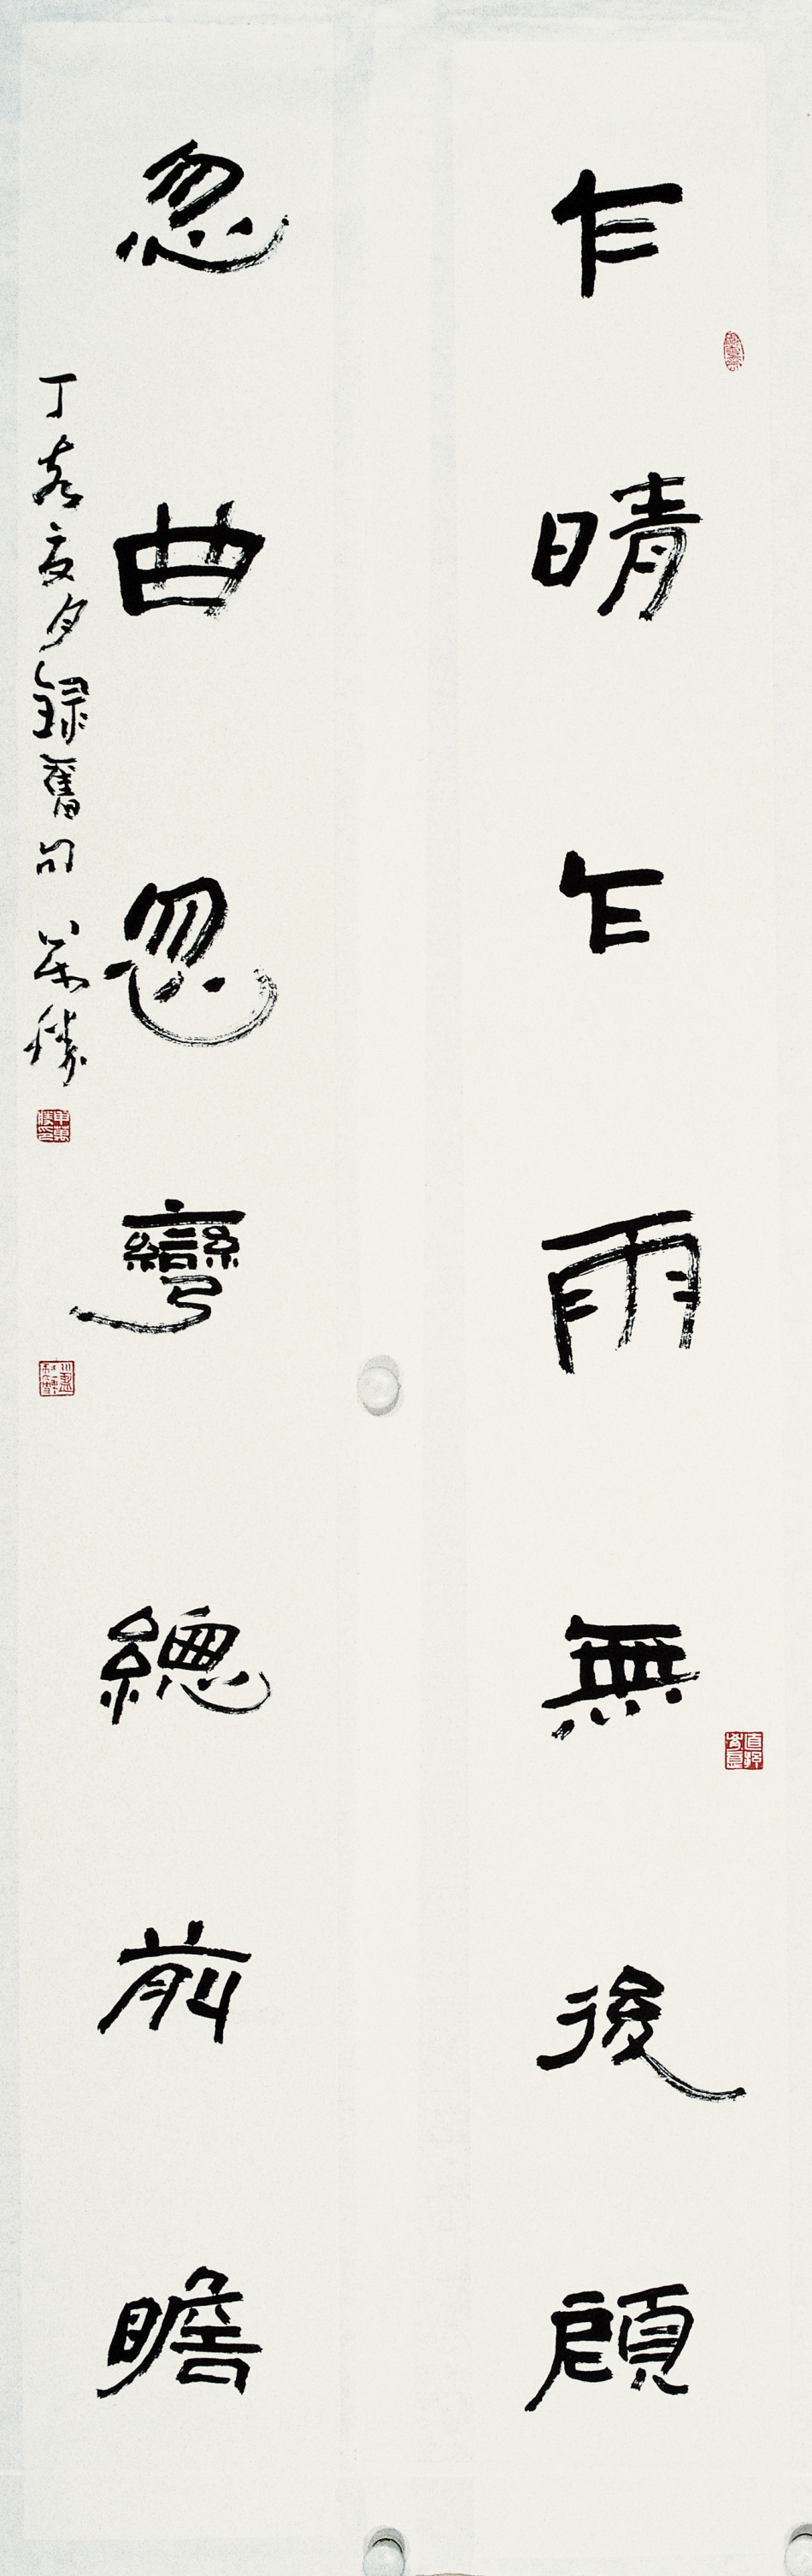 乍晴乍雨無後顧
忽曲忽彎總前瞻
丁亥夏夕録舊句 萬勝